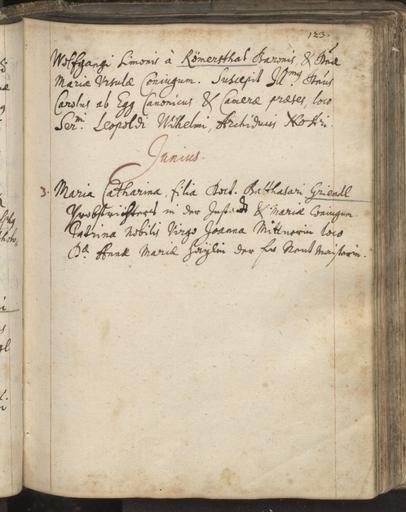 123.
Wolffgangi Simonis à Römersthal Baronis, & Dnæ
Mariæ Ursulæ Coniugum. Suscepit Ill.mus Dnus
Carolus ab Egg Canonicus & Cameræ præses loco
Ser.mi Leopoldi Wilhelmi, Archiducis
Junius.
3. Maria Catharina filia Balthasari
in der & Mariæ Coniugum
Patrina Nobilis Virgo Joanna loco
Dæ Annæ Mariæ der